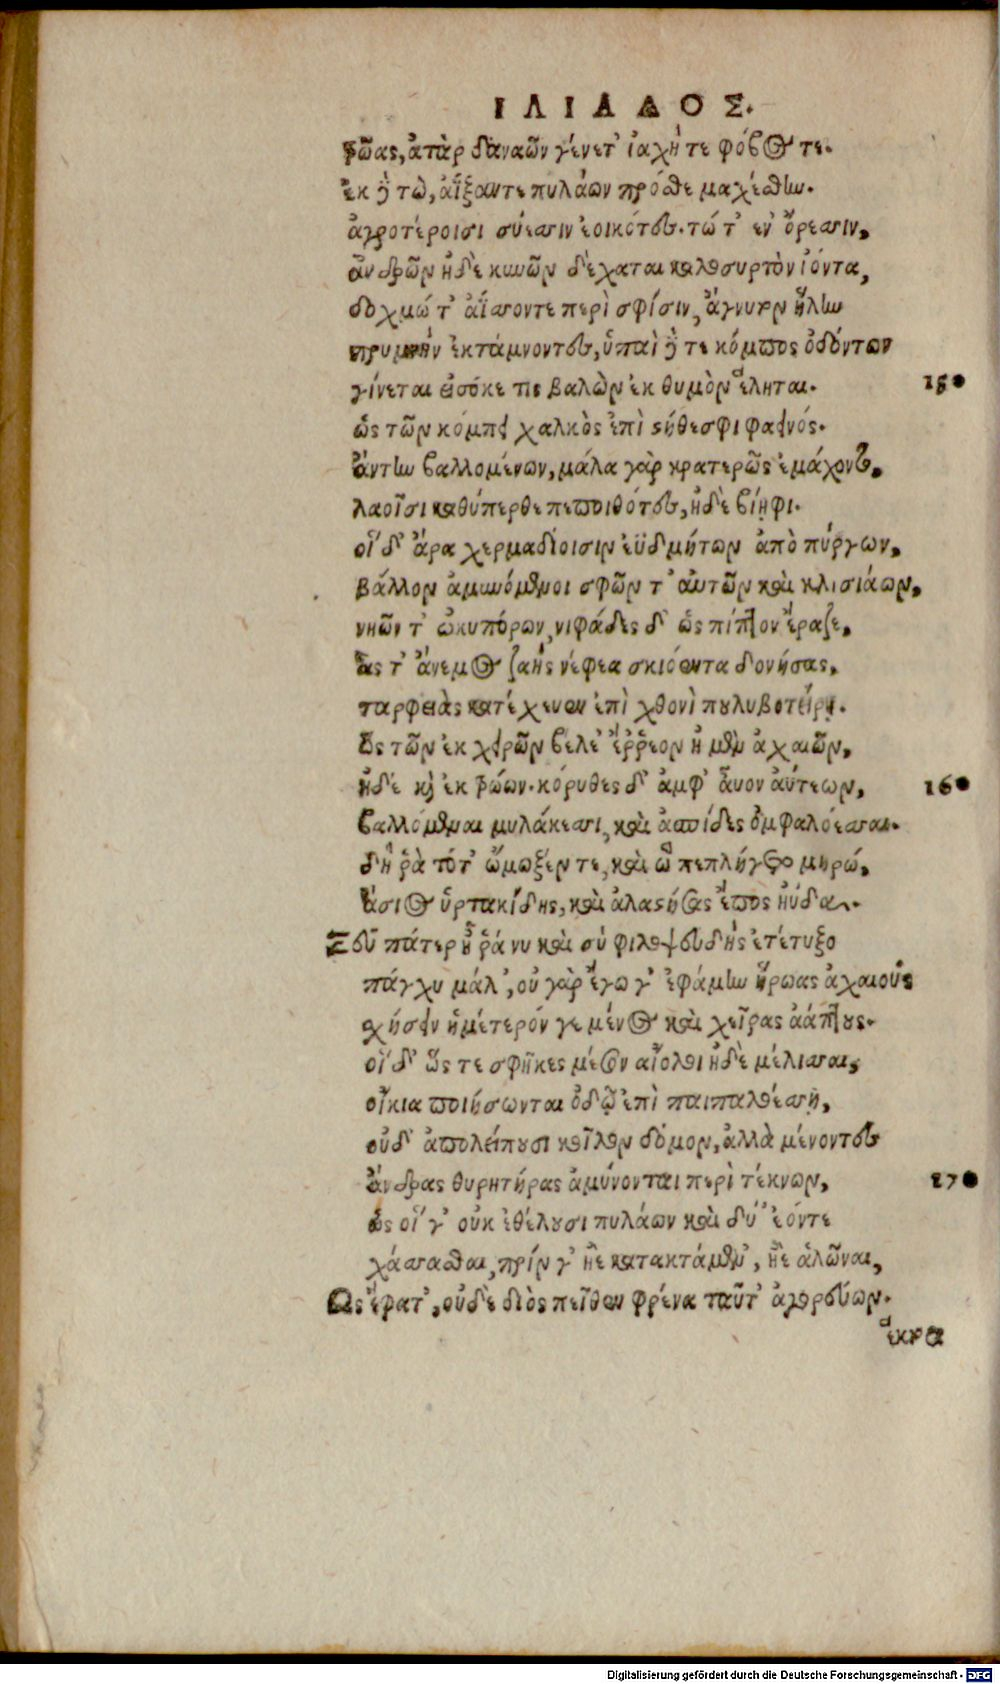 ΙΛΙΑΔΟΣ.
τρῶας, ἀτὰρ δαναῶν γένετ' ἰαχή τε φόβος τε.
ἐκ δὲ τὼ, ἀΐξαντε πυλάων πρόσθε μαχέσθην.
ἀγροτέροισι σύεσσιν ἐοικότες. τώ τ' ἐν ὄρεσσιν,
ἀνδρῶν ἠδὲ κυνῶν δέχαται κολοσυρτὸν ἰόντα,
δοχμώ τ' ἀΐσσοντε περὶ σφίσιν, ἄγνυτον ὕλην
πρυμνὴν ἐκτάμνοντες, ὑπαὶ δέ τε κόμπος ὀδόντων
γίνεται εἰσόκε τις βαλὼν ἐκ θυμὸν ἕληται. 150
ὣς τῶν κόμπει χαλκὸς ἐπὶ στήθεσφι φαεινός.
ἄντην βαλλομένων, μάλα γὰρ κρατερῶς ἐμάχοντο.
λαοῖσι καθύπερθε πεποιθότες, ἠδὲ βίηφι.
οἵ δ' ἄρα χερμαδίοισιν ἐϋδμήτων ἀπὸ πύργων,
βάλλον ἀμυνόμενοι σφῶν τ' αὐτῶν καὶ κλισιάων,
νηῶν τ' ὠκυπόρων, νιφάδες δ' ὡς πίπτον ἔραζε,
ἅς τ' ἄνεμος ζαὴς νέφεα σκιόεντα δονήσας,
ταρφειὰς κατέχευεν ἐπὶ χθονὶ πουλυβοτείρῃ.
ὣς τῶν ἐκ χειρῶν βέλε' ἔρρεον ἠ μὲν ἀχαιῶν,
ἠδέ καὶ ἐκ τρώων. κόρυθες δ' ἀμφ' αὖον ἀύτευν, 160
βαλλόμεναι μυλάκεσσι, καὶ ἀσπίδες ὀμφαλόεσσαι.
δή ῥὰ τότ' ᾤμωξέν τε, καὶ ὣ πεπλήγετο μηρώ,
ἄσιος ὑρτακίδης, καὶ ἀλαστήσας ἔπος ηὔδα.
Ζεῦ πάτερ ἦ ῥά νυ καὶ σὺ φιλοψευδὴς ἐτέτυξο
πάγχυ μάλ', οὐ γὰρ ἔγωγ' ἐφάμην ἥρωας ἀχαιούς
σχήσειν ἡμέτερόν γε μένος καὶ χεῖρας ἀάπτους.
οἳ δ' ὥς τε σφῆκες μέσον αἰόλοι ἠδὲ μέλισσαι,
οἰκία ποιήσωνται ὁδῷ ἐπὶ παιπαλοέσσῃ,
οὐδ' ἀπολείπουσι κοῖλον δόμον, ἀλλὰ μένοντες
ἄνδρας θυρητῆρας ἀμύνονται περὶ τέκνων, 170
ὣς οἵ γ' οὐκ ἐθέλουσι πυλάων καὶ δύ' ἐόντε
χάσσασθαι, πρίν γ' ἠὲ κατακτάμεν', ἠὲ ἁλῶναι,
Ως ἔφατ', οὐδὲ διὸς πεῖθεν φρένα ταῦτ' ἀγορεύων.
ἕκτο
Digitalisierung gefördert durch die Deutsche Forschungsgemeinschaft - DFG